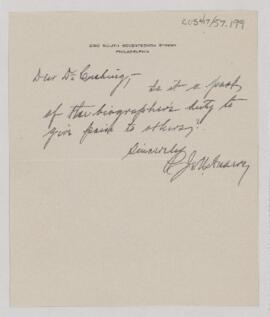 CUS417/57.199
SOUTH SEVENTEENTH STREET
PHILADELPHIA
Dear Dr. Cushing,
Is it a part
of the biographer's duty to
give pain to others?
Sincerely